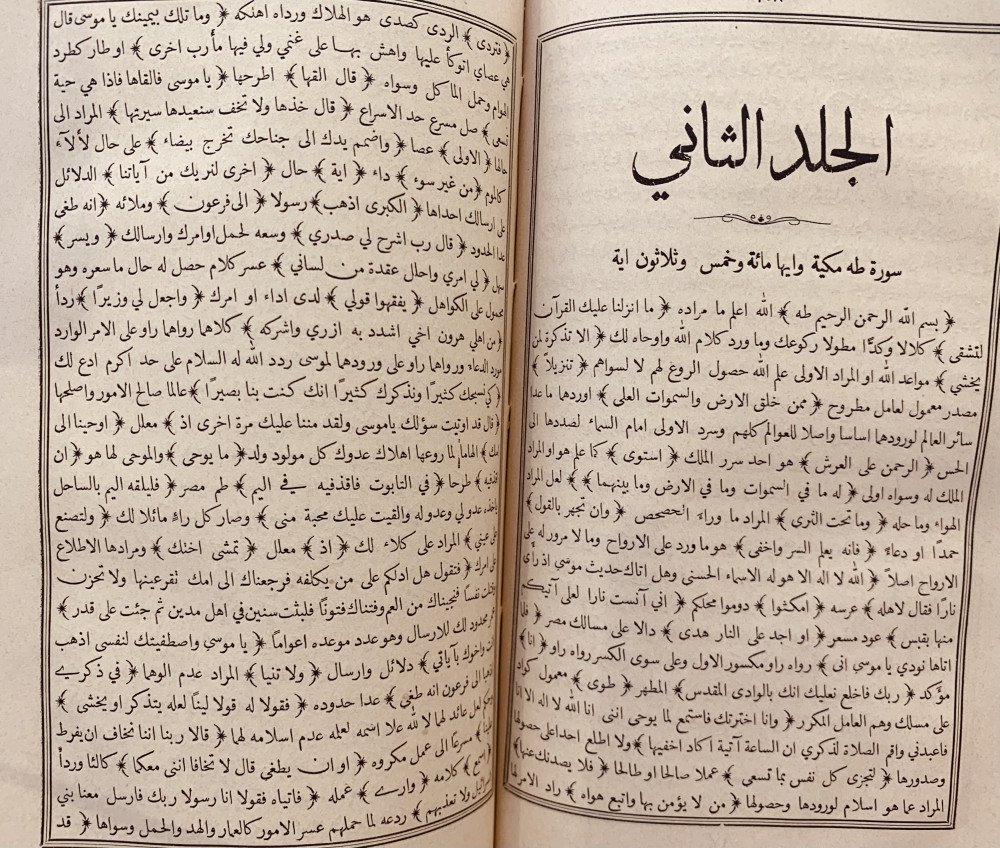 الجلد الثاني
سورة طه مكية وايها مائة وخمس وثلاثون اية
﴿ بسم الله الرحمن الرحيم طه ﴾ الله اعلم ما مراده ﴿ ما انزلنا عليك القرآن
لتشقى ﴾ كلالا وكدًّا مطولا ركوعك وما ورد كلام الله واوحاه لك ﴿ الا تذكرة لمن
يخشي ﴾ مواعد الله او المراد الاولى علم الله حصول الروع لهم لا لسواهم ﴿ تنزيلاً ﴾
مصدر معمول لعامل مطروح ﴿ ممن خلق الارض والسموات العلى ﴾ اوردها ما عدا
سائر العالم لورودهما اساسا واصلا للعوالم كلهم وسرد الاولى امام السماء لضددها الى
الحس ﴿ الرحمن على العرش ﴾ هو احد سرر الملك ﴿ استوى ﴾ كما علم هو او المراد
الملك له وسواه اولى ﴿ له ما في السموات وما في الارض وما بينهما ﴾ لعل المراد
الهواء وما حله ﴿ وما تحت الثرى ﴾ المراد ما وراء الحصحص ﴿ وان تجهر بالقول ﴾
حمدًا او دعاءً ﴿ فانه يعلم السر واخفى ﴾ هو ما ورد على الارواح وما لا مرور له على
الارواح اصلاً ﴿ الله لا اله الا هو له الاسماء الحسنى وهل اتاك حديث موسي اذ رأى
نارًا فقال لاهله ﴾ عرسه ﴿ امكثوا ﴾ دوموا محلكم ﴿ اني آنست نارا لعلي آتيكم
منها بقبس ﴾ عود مسعر ﴿ او اجد على النار هدى ﴾ دالا على مسالك مصر ﴿ فلما
اتاها نودي يا موسى انى ﴾ رواه راو مكسور الاول وعلى سوى الكسر رواه راو ﴿ انا ﴾
مؤكد ﴿ ربك فاخلع نعليك انك بالوادى المقدس ﴾ المطهر ﴿ طوى ﴾ معمول كواد
على مسلك وهم العامل المكرر ﴿ وانا اخترتك فاستمع لما يوحى اننى انا الله لا اله الا انا
فاعبدني واقم الصلاة لذكري ان الساعة آتية اكاد اخفيها ﴾ ولا اطلع احدا على حصولها
وصدورها ﴿ لتجزى كل نفس بما تسعى ﴾ عملا صالحا او طالحا ﴿ فلا يصدنك عنها ﴾
المراد عما هو اسلام لورودها وحصولها ﴿ من لا يؤمن بها واتبع هواه ﴾ راد الامر لها
﴿ فتردى ﴾ الردى كصدى هو الهلاك ورداه اهلكه ﴿ وما تلك بيمينك يا موسى قال
هي عصاي اتوكأ عليها واهش بها على غنمي ولي فيها مأرب اخرى ﴾ او طار كطرد
الهوام وحمل الماكل وسواه ﴿ قال القها ﴾ اطرحها ﴿ يا موسى فالقاها فاذا هي حية
تسعى ﴾ صل مسرع حد الاسراع ﴿ قال خذها ولا تخف سنعيدها سيرتها ﴾ المراد الى
حالها ﴿ الاولى ﴾ عصا ﴿ واضمم يدك الى جناحك تخرج بيضاء ﴾ على حال لألآء
﴿ من غير سوء ﴾ داء ﴿ اية ﴾ حال ﴿ اخرى لنريك من آياتنا ﴾ الدلائل
على ارسالك احداها ﴿ الكبرى اذهب ﴾ رسولا ﴿ الى فرعون ﴾ وملائه ﴿ انه طغى ﴾
عدا الحدود ﴿ قال رب اشرح لي صدري ﴾ وسعه لحمل اوامرك وارسالك ﴿ ويسر ﴾
سهل ﴿ لي امري واحلل عقدة من لساني ﴾ عسر كلام حصل له حال ما سعره وهو
محمول على الكواهل ﴿ يفقهوا قولي ﴾ لدى اداء او امرك ﴿ واجعل لي وزيرًا ﴾ ردأ
﴿ من اهلي هرون اخي اشدد به ازري واشركه ﴾ كلاهما رواها راو على الامر الوارد
مورد الدعاء ورواها راو على ورودهما لموسى ردد الله له السلام على حد اكرم ادع لك
﴿ كي نسبحك كثيرًا ونذكرك كثيرًا انك كنت بنا بصيرًا ﴾ عالما صالح الامور واصلحها
﴿ قال قد اوتيت سؤلك ياموسى ولقد مننا عليك مرة اخرى اذ ﴾ معلل ﴿ اوحينا الى
امك ﴾ الهاما لما روعها اهلاك عدوك كل مولود ولد ﴿ ما يوحى ﴾ والموحى لها هو ﴿ ان
اقذفيه ﴾ طرحا ﴿ في التابوت فاقذفيه في اليم ﴾ طم مصر ﴿ فليلقه اليم بالساحل
ياخذه عدو لي وعدو له والقيت عليك محبة منى ﴾ وصار كل راءٍ مائلا لك ﴿ ولتصنع
على عيني ﴾ المراد على كلاء لك ﴿ اذ ﴾ معلل ﴿ تمشى اختك ﴾ ومرادها الاطلاع
على امرك ﴿ فتقول هل ادلكم على من يكفله فرجعناك الى امك تقر عينها ولا تحزن
وقتلت نفسًا فنجيناك من الغم وفتناك فتونًا فلبثت سنين في اهل مدين ثم جئت على قدر ﴾
محدود لك للارسال وهو عدد موعده اعوامًا ﴿ يا موسى واصطفيتك لنفسى اذهب
انت واخوك بآياتي ﴾ دلائل وارسال ﴿ ولا تنيا ﴾ المراد عدم الوها ﴿ في ذكري
اذهبا الى فرعون انه طغى ﴾ عدا حدوده ﴿ فقولا له قولا لينًا لعله يتذكر او يخشي ﴾
لعل عائد لهما لا لله علا اسمه لعلمه عدم اسلامه لهما ﴿ قالا ربنا اننا نخاف ان يفرط
علينا ﴾ مسرعًا الى عمل مكروه ﴿ او ان يطغى قال لا تخافا اننى معكما ﴾ كالئا وردأ
﴿ اسمع ﴾ كلامه ﴿ وارى ﴾ عمله ﴿ فاتياه فقولا انا رسولا ربك فارسل معنا بني
اسرائيل ولا تعذبهم ﴾ ردعه لما حملهم عسر الامور كالعمار والهد والحمل وسواها ﴿ قد